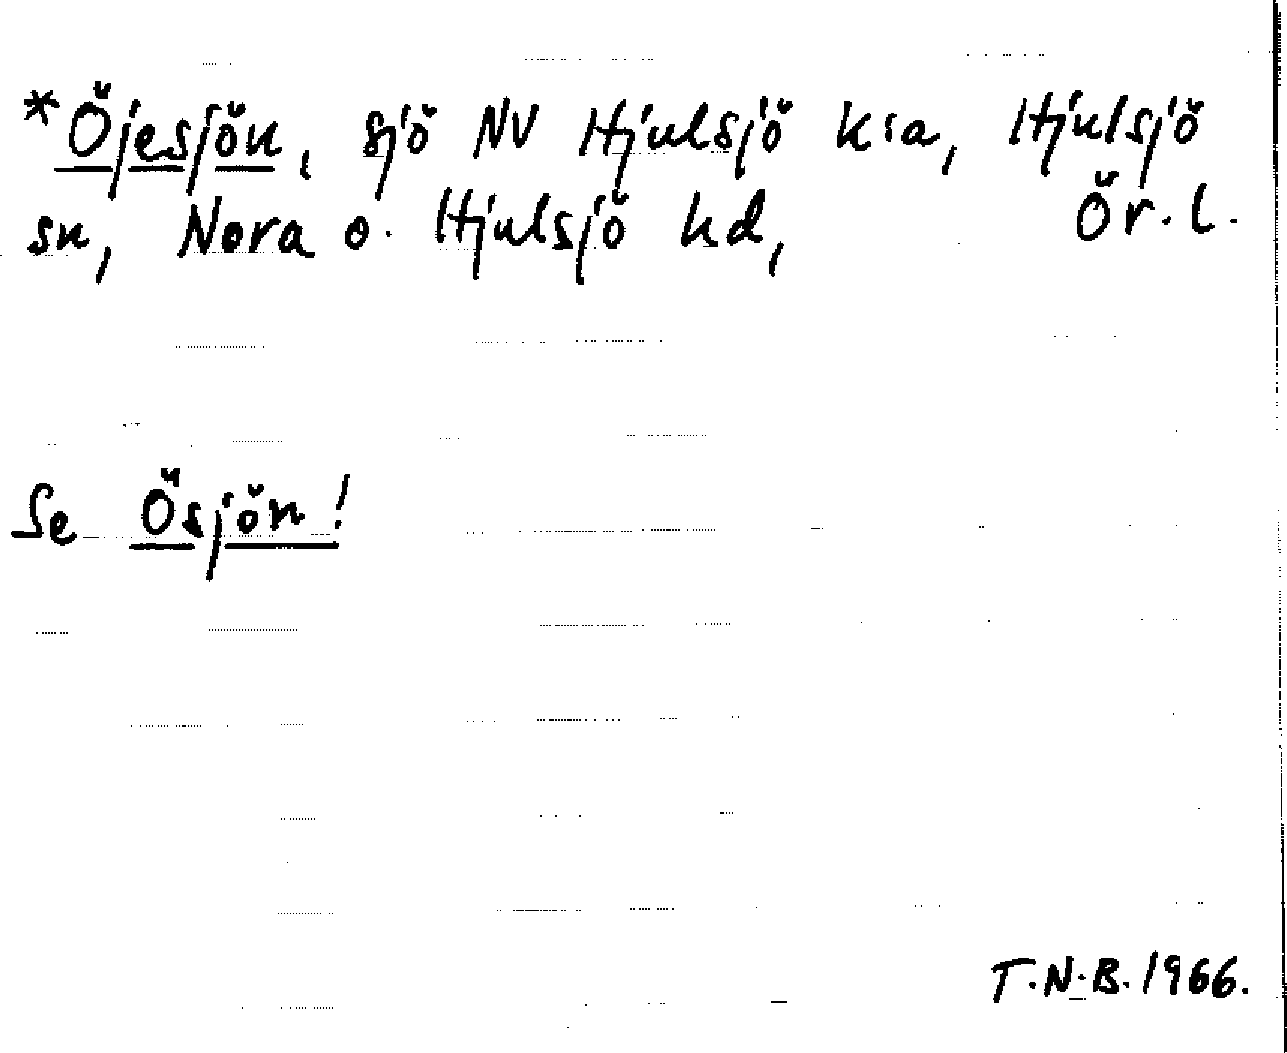 *Öjesjön, sjö NV Hjulsjö k:a, Hjulsjö
sn, Nora o. Hjulsjö hd, Ör.l.
Se Ösjön!
T.N.B. 1966.